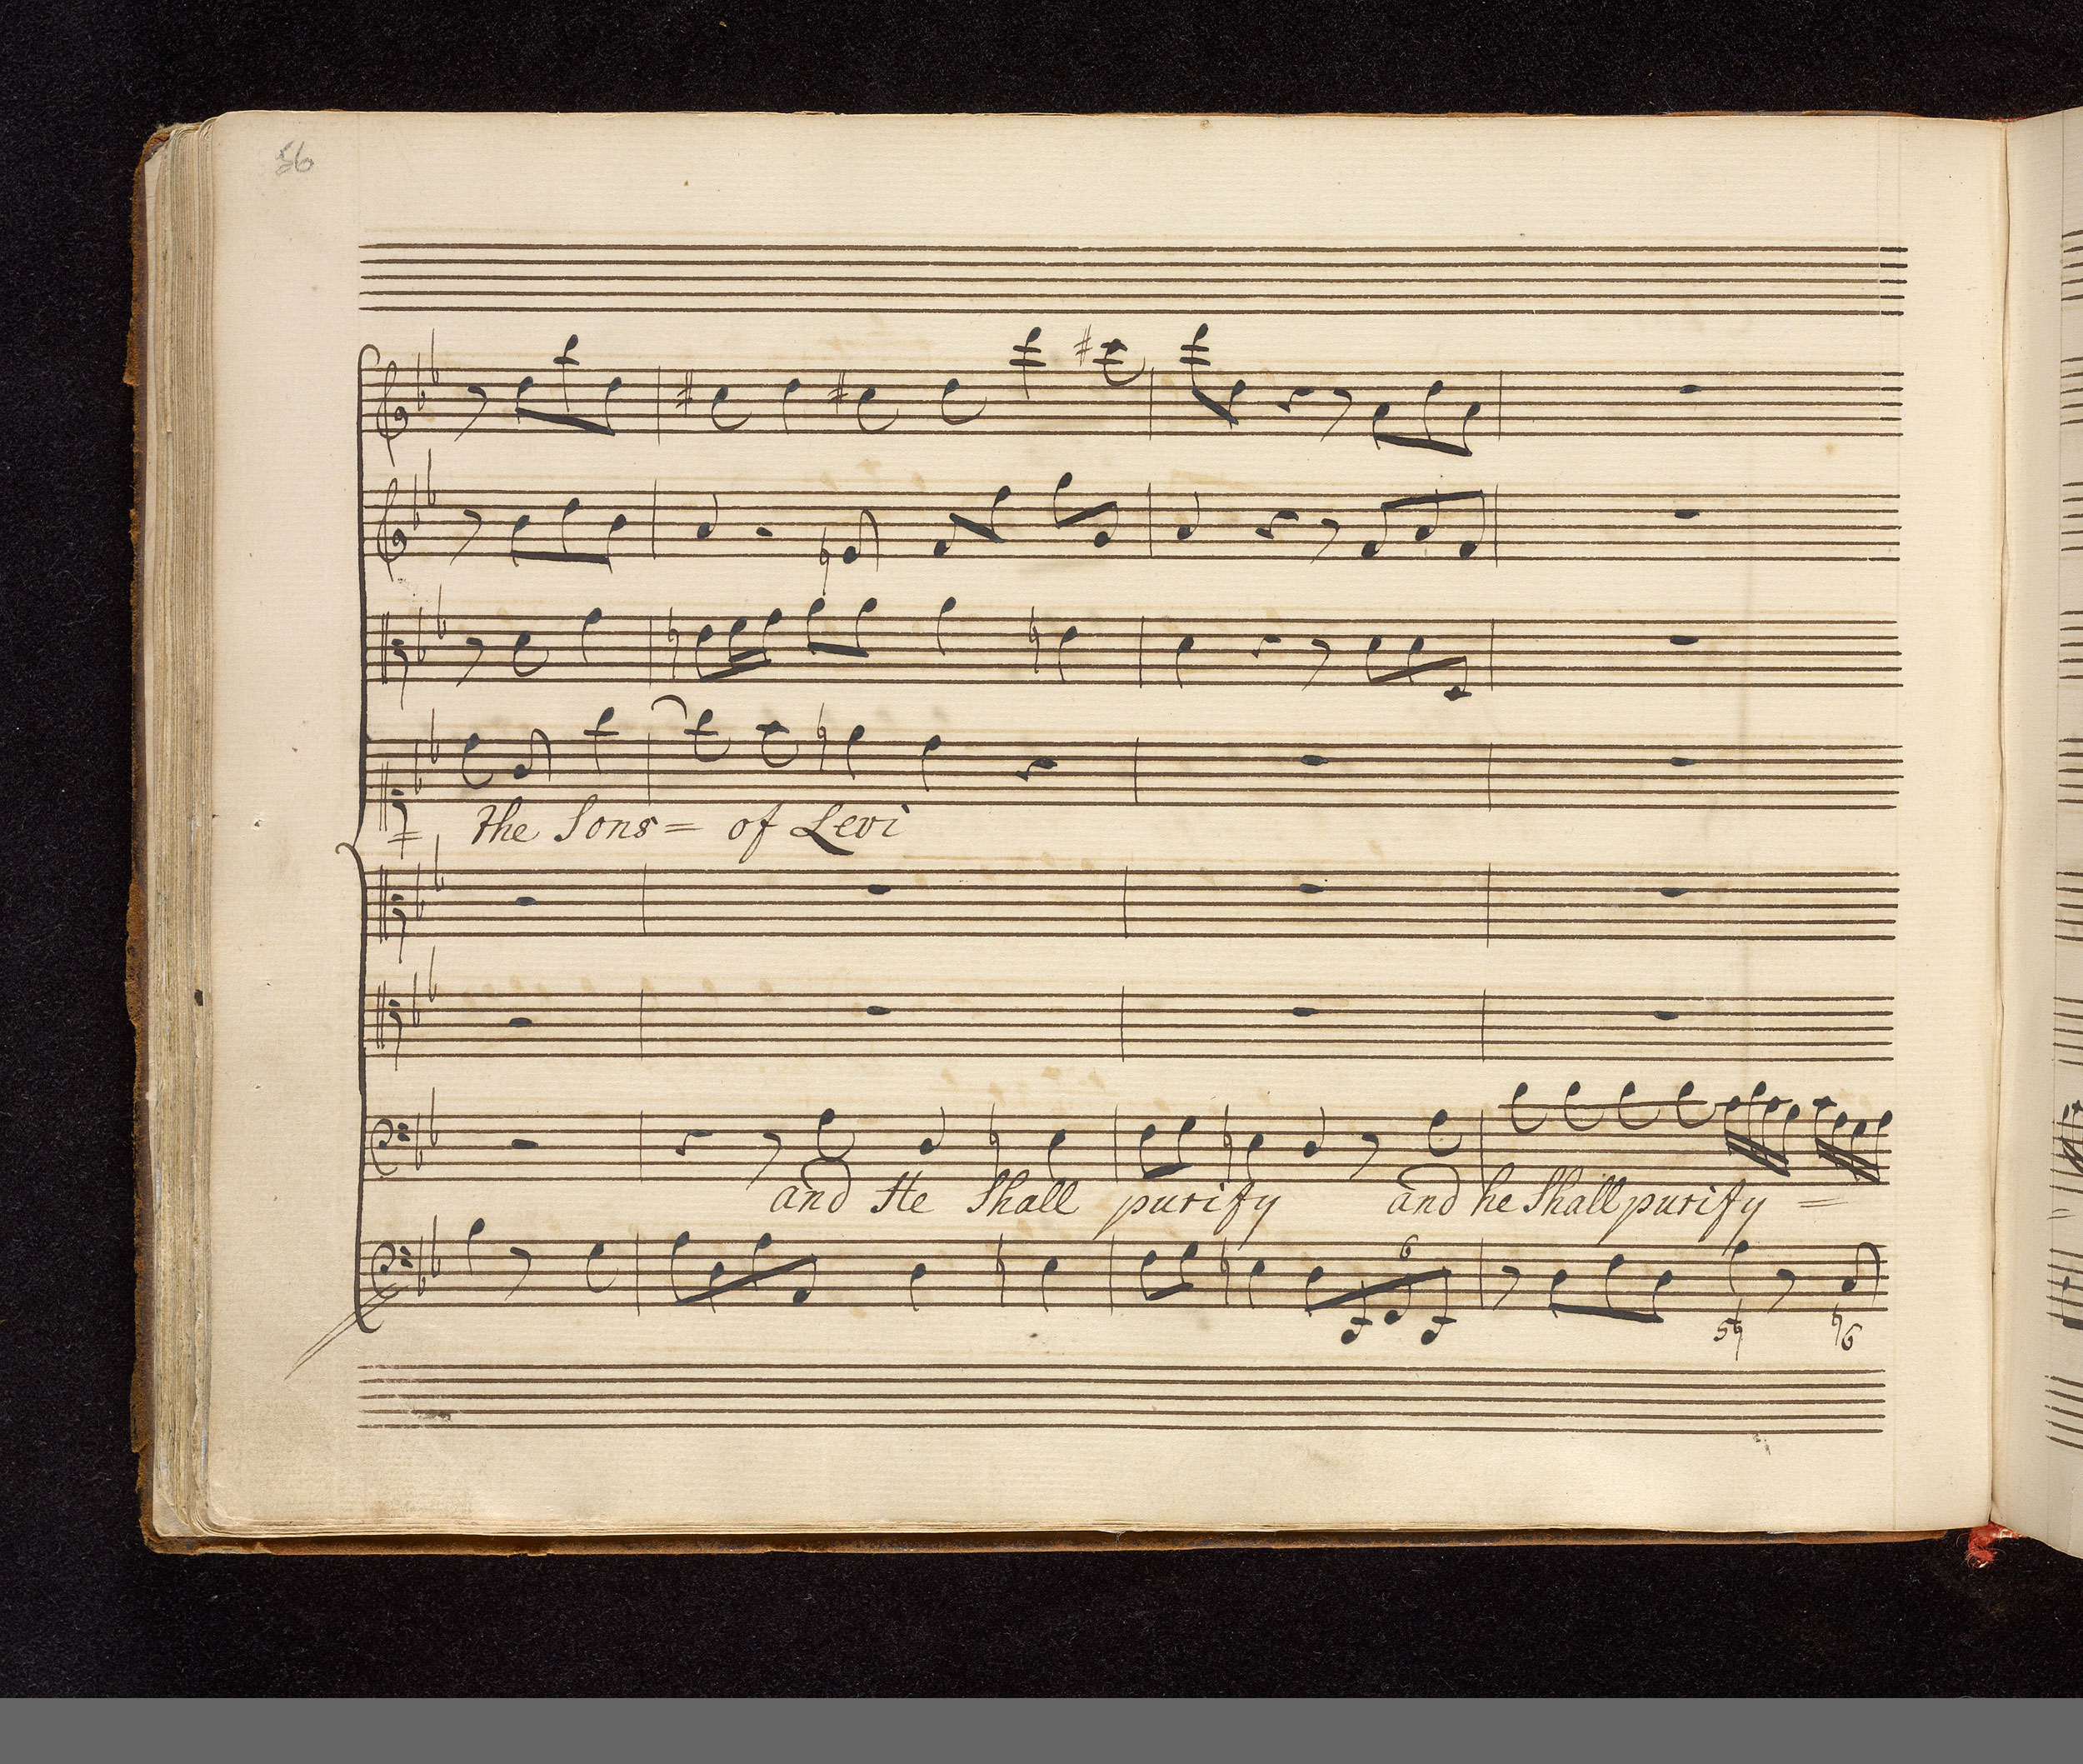 56
the Sons = of Levi
and He Shall purify and he Shall purify =
6
5♮ ♮6